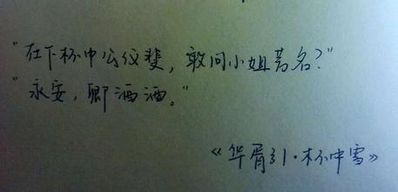 "在下杯中公仪斐，敢问小姐芳名？"
"永安，卿酒酒。"
《华胥引·杯中雪》